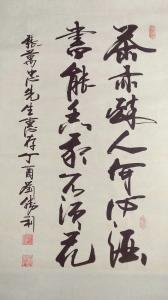 茶亦醉人何必酒
書能香我不須花
張萬忠先生惠存丁酉劉衛利